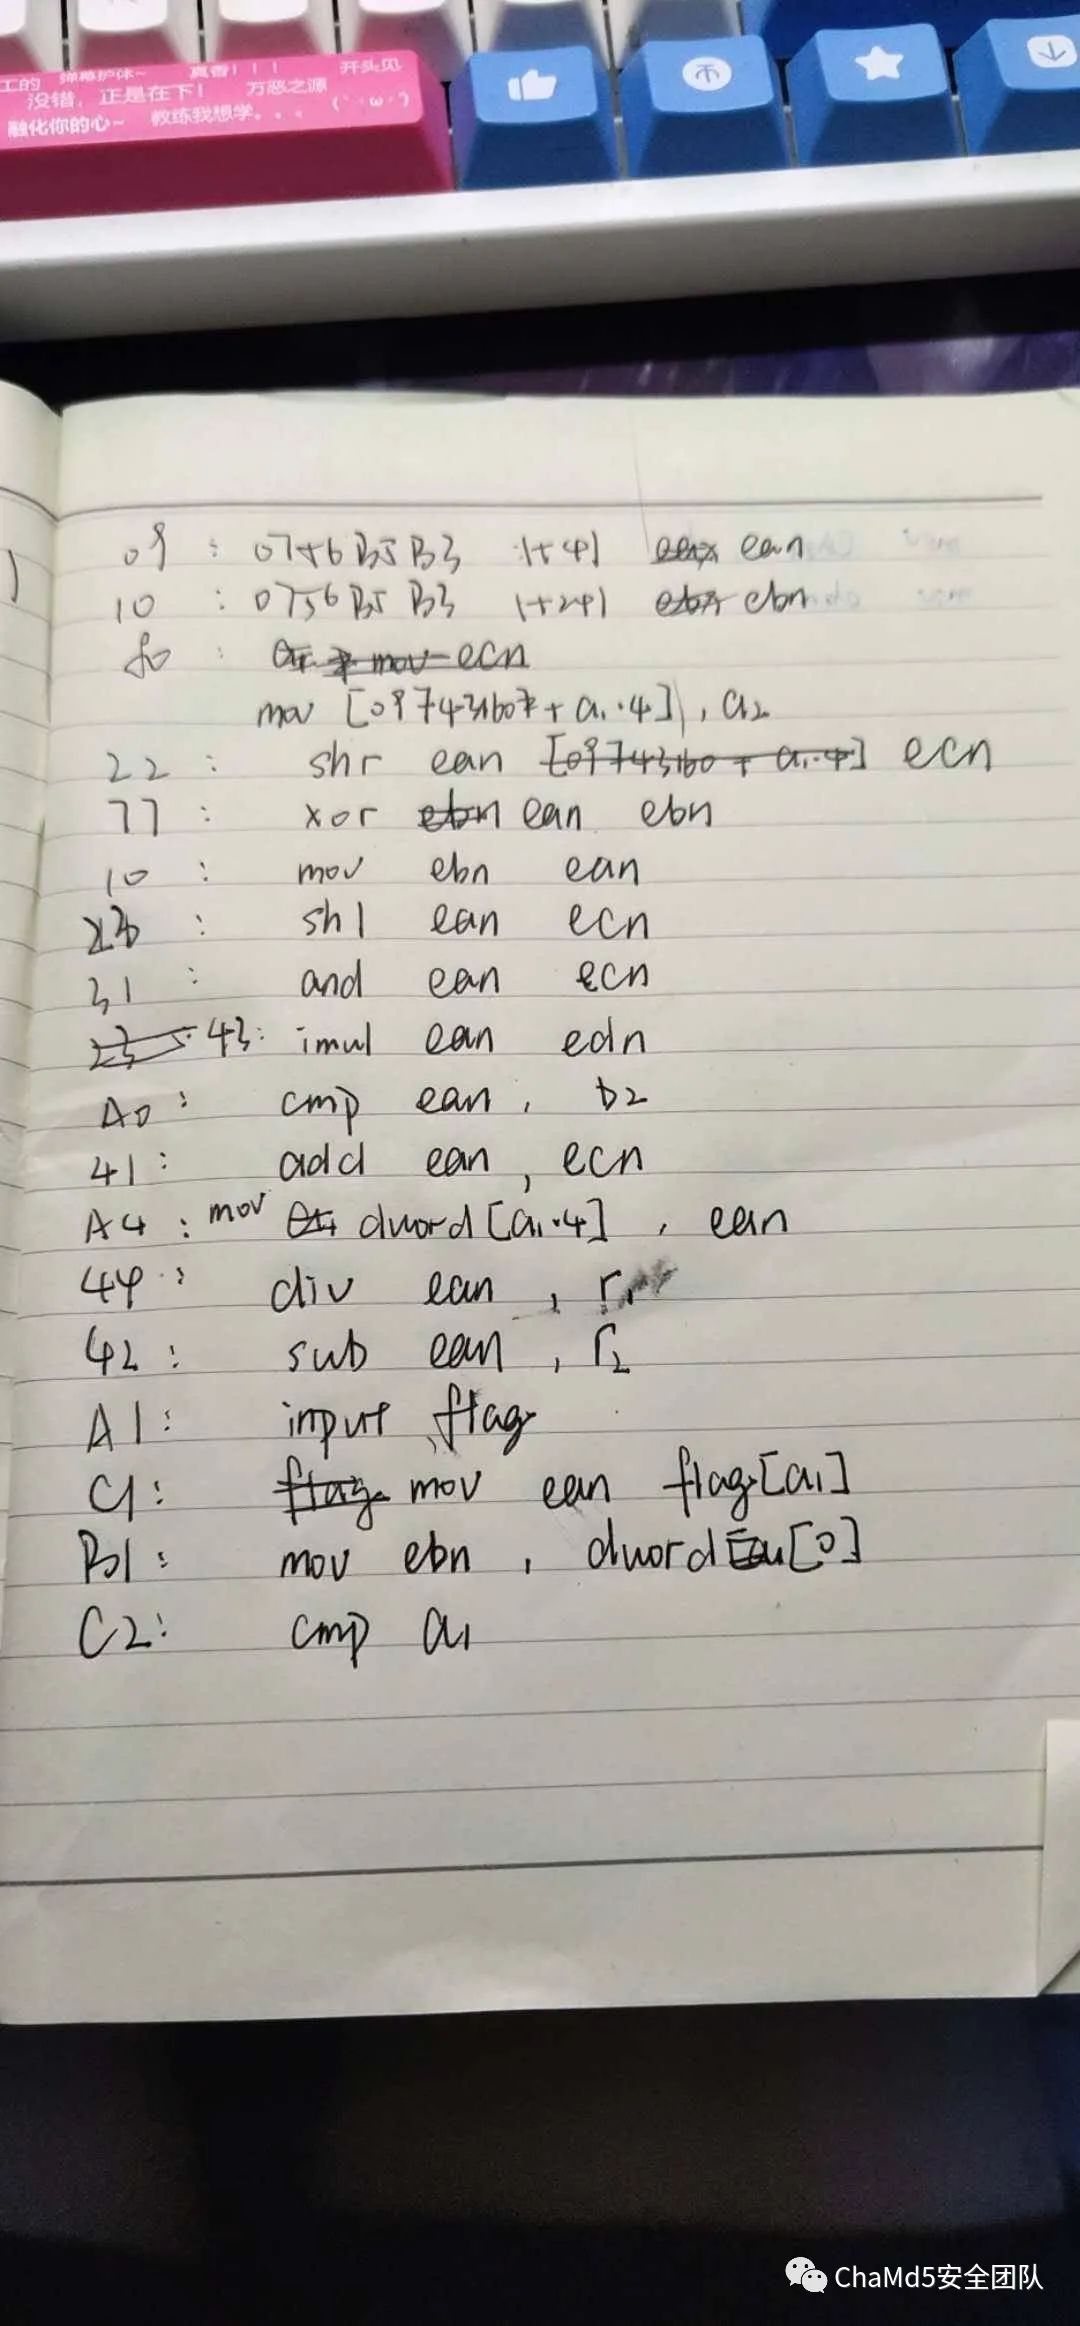 工的 弹幕护体~ 真香!!! 开头见
没错,正是在下! 万恶之源
融化你的心~ 教练我想学。。。 (`・ω・´)
09 : 0756B5B3 1+41 ean
10 : 0756B5B3 1+241 ebn
80 :
mov [09743160 + a1·4], a2
22 : shr ean ecn
77 : xor ean ebn
10 : mov ebn ean
23 : shl ean ecn
31 : and ean ecn
43: imul ean edn
A0 : cmp ean, b2
41 : add ean, ecn
A4 : mov dword[a1·4] , ean
44 : div ean , r1
42 : sub ean , r2
A1: input flag
C1: mov ean flag[a1]
B1: mov ebn , dword[0]
C2: cmp a1
ChaMd5安全团队